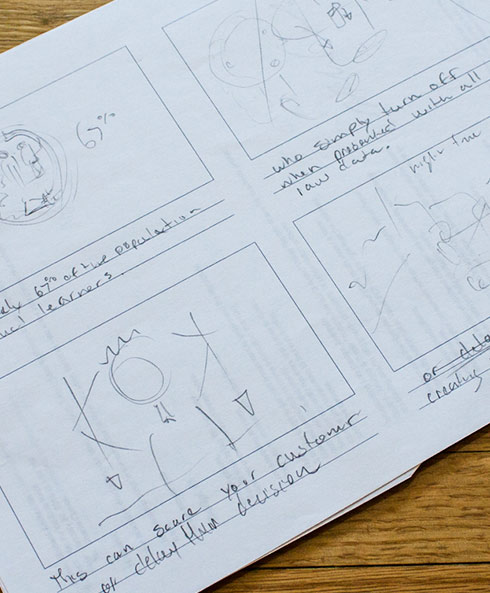 67%
67% of the population
learners.
who simply turn off
when presented with all
raw data.
right
This can scare your customer
or delay their decision
or
creating